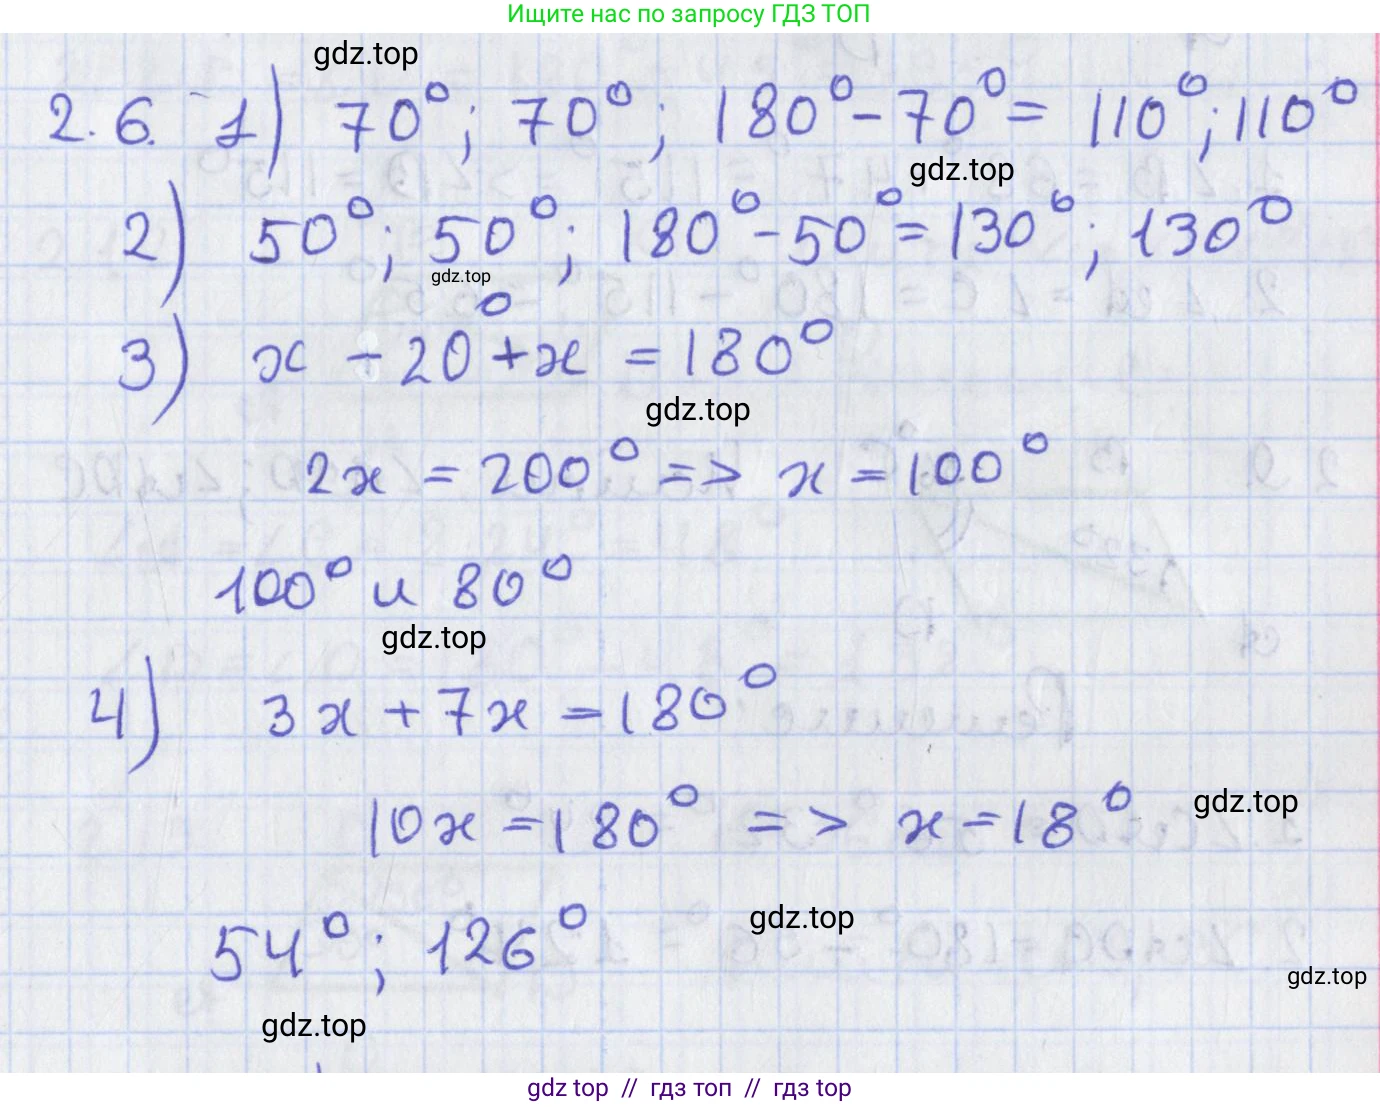 Ищите нас по запросу ГДЗ ТОП
gdz.top
2.6. 1) 70°; 70°; 180° - 70° = 110°; 110°
gdz.top
2) 50°; 50°; 180° - 50° = 130°; 130°
gdz.top
3) x - 20° + x = 180°
gdz.top
2x = 200° => x = 100°
100° и 80°
gdz.top
4) 3x + 7x = 180°
gdz.top
10x = 180° => x = 18°
gdz.top
54°; 126°
gdz.top
gdz.top
gdz top // гдз топ // гдз top